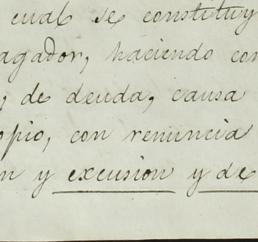 cual se constituy
agador, haciendo con
, de deuda, causa
opio, con renuncia
n y excusion y de